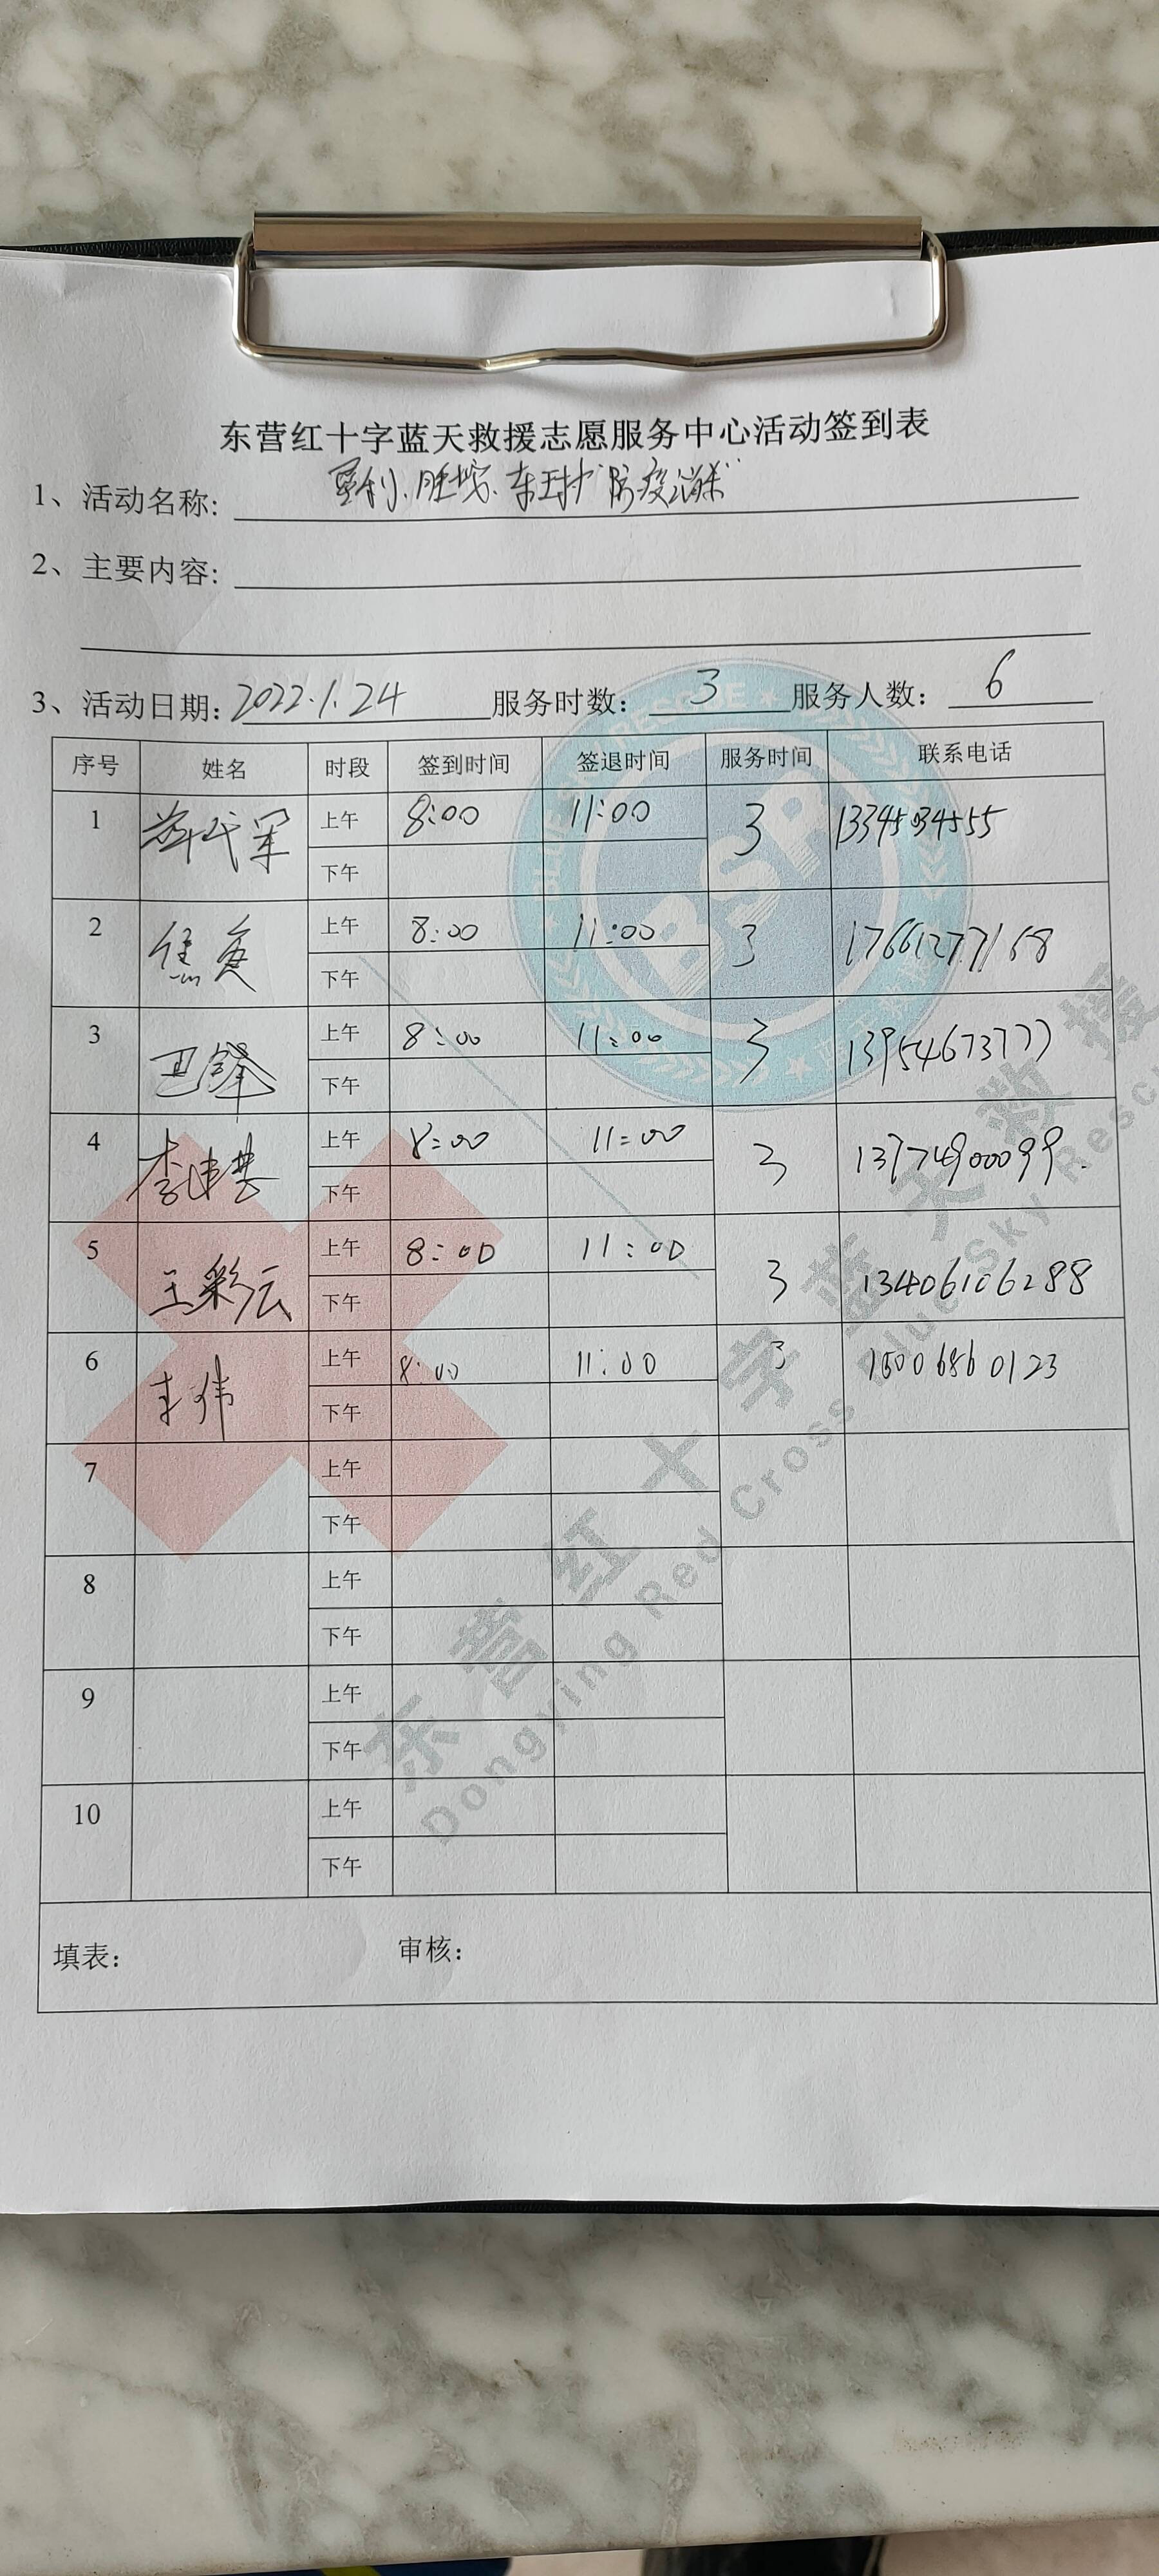 东营红十字蓝天救援志愿服务中心活动签到表
1、活动名称: 垦利、胜坨、"防疫消杀"
2、主要内容:
3、活动日期: 2022.1.24 服务时数: 3 服务人数: 6
序号 姓名 时段 签到时间 签退时间 服务时间 联系电话
1 上午 8:00 11:00 3 13345434555
下午
2 上午 8:00 11:00 3 17661277168
下午
3 上午 8:00 11:00 3 13954673777
下午
4 上午 8:00 11:00 3 13774900099.
下午
5 王彩云 上午 8:00 11:00 3 13406106288
下午
6 上午 8:00 11:00 3 15006860123
下午
7 上午
下午
8 上午
下午
9 上午
下午
10 上午
下午
填表: 审核:
BSR
东营红十字蓝天救援
Dongying Red Cross Blue Sky Rescu